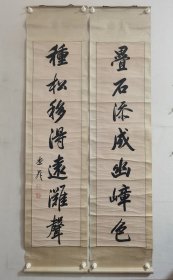 疊石添成幽嶂色
種松移得遠灘聲